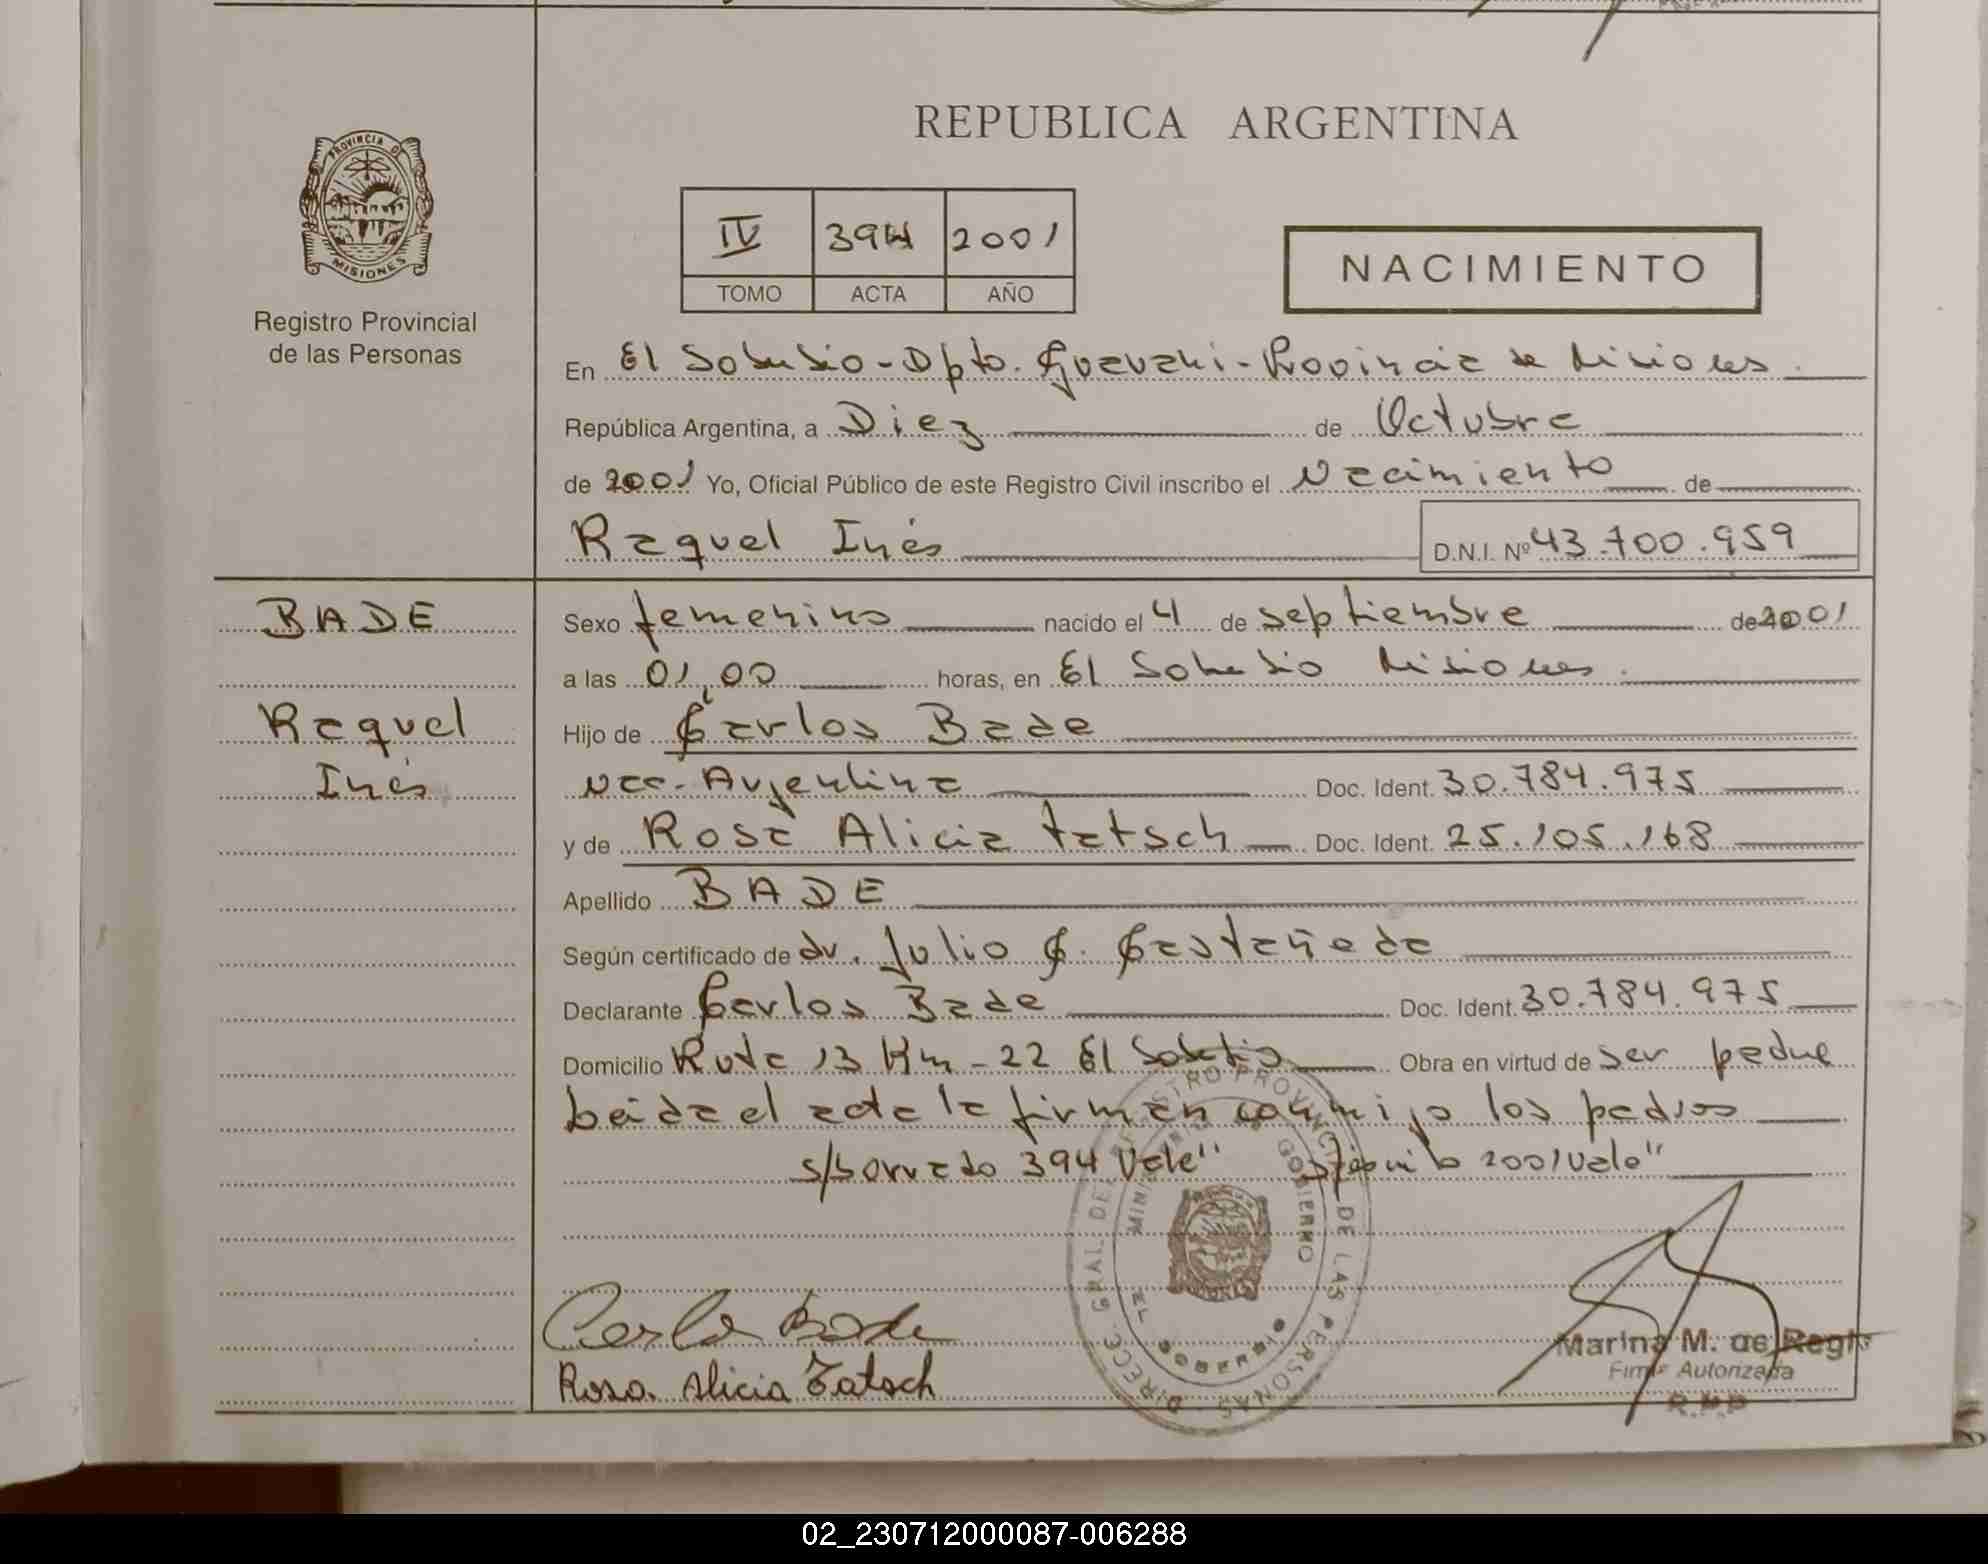 REPUBLICA ARGENTINA
PROVINCIA DE
MISIONES
Registro Provincial
de las Personas
IV 394 2001
TOMO ACTA AÑO
NACIMIENTO
En El Soberbio - Dpto. Guarani - Provincia de Misiones.
República Argentina, a Diez de Octubre
de 2001 Yo, Oficial Público de este Registro Civil inscribo el Nacimiento de
Raquel Inés D.N.I. Nº 43.700.959
BADE
Raquel
Inés
Sexo femenino nacido el 4 de septiembre de 2001
a las 01,00 horas, en El Soberbio Misiones.
Hijo de Carlos Bade
Nac. Argentina Doc. Ident. 30.784.975
y de Rosa Alicia Tatsch Doc. Ident. 25.105.168
Apellido BADE
Según certificado de dr. Julio C. Castañeda
Declarante Carlos Bade Doc. Ident. 30.784.975
Domicilio Ruta 13 Km - 22 El Soberbio Obra en virtud de ser padre
Leida el acta la firman conmigo los padres
s/borrado 394 Vale" 2001 Vale"
DIRECC. GRAL. DEL REGISTRO PROVINCIAL DE LAS PERSONAS
GOBIERNO
Carlos Bade
Rosa Alicia Tatsch
Marina M. de
Firma Autorizada
R.P.P
02_230712000087-006288